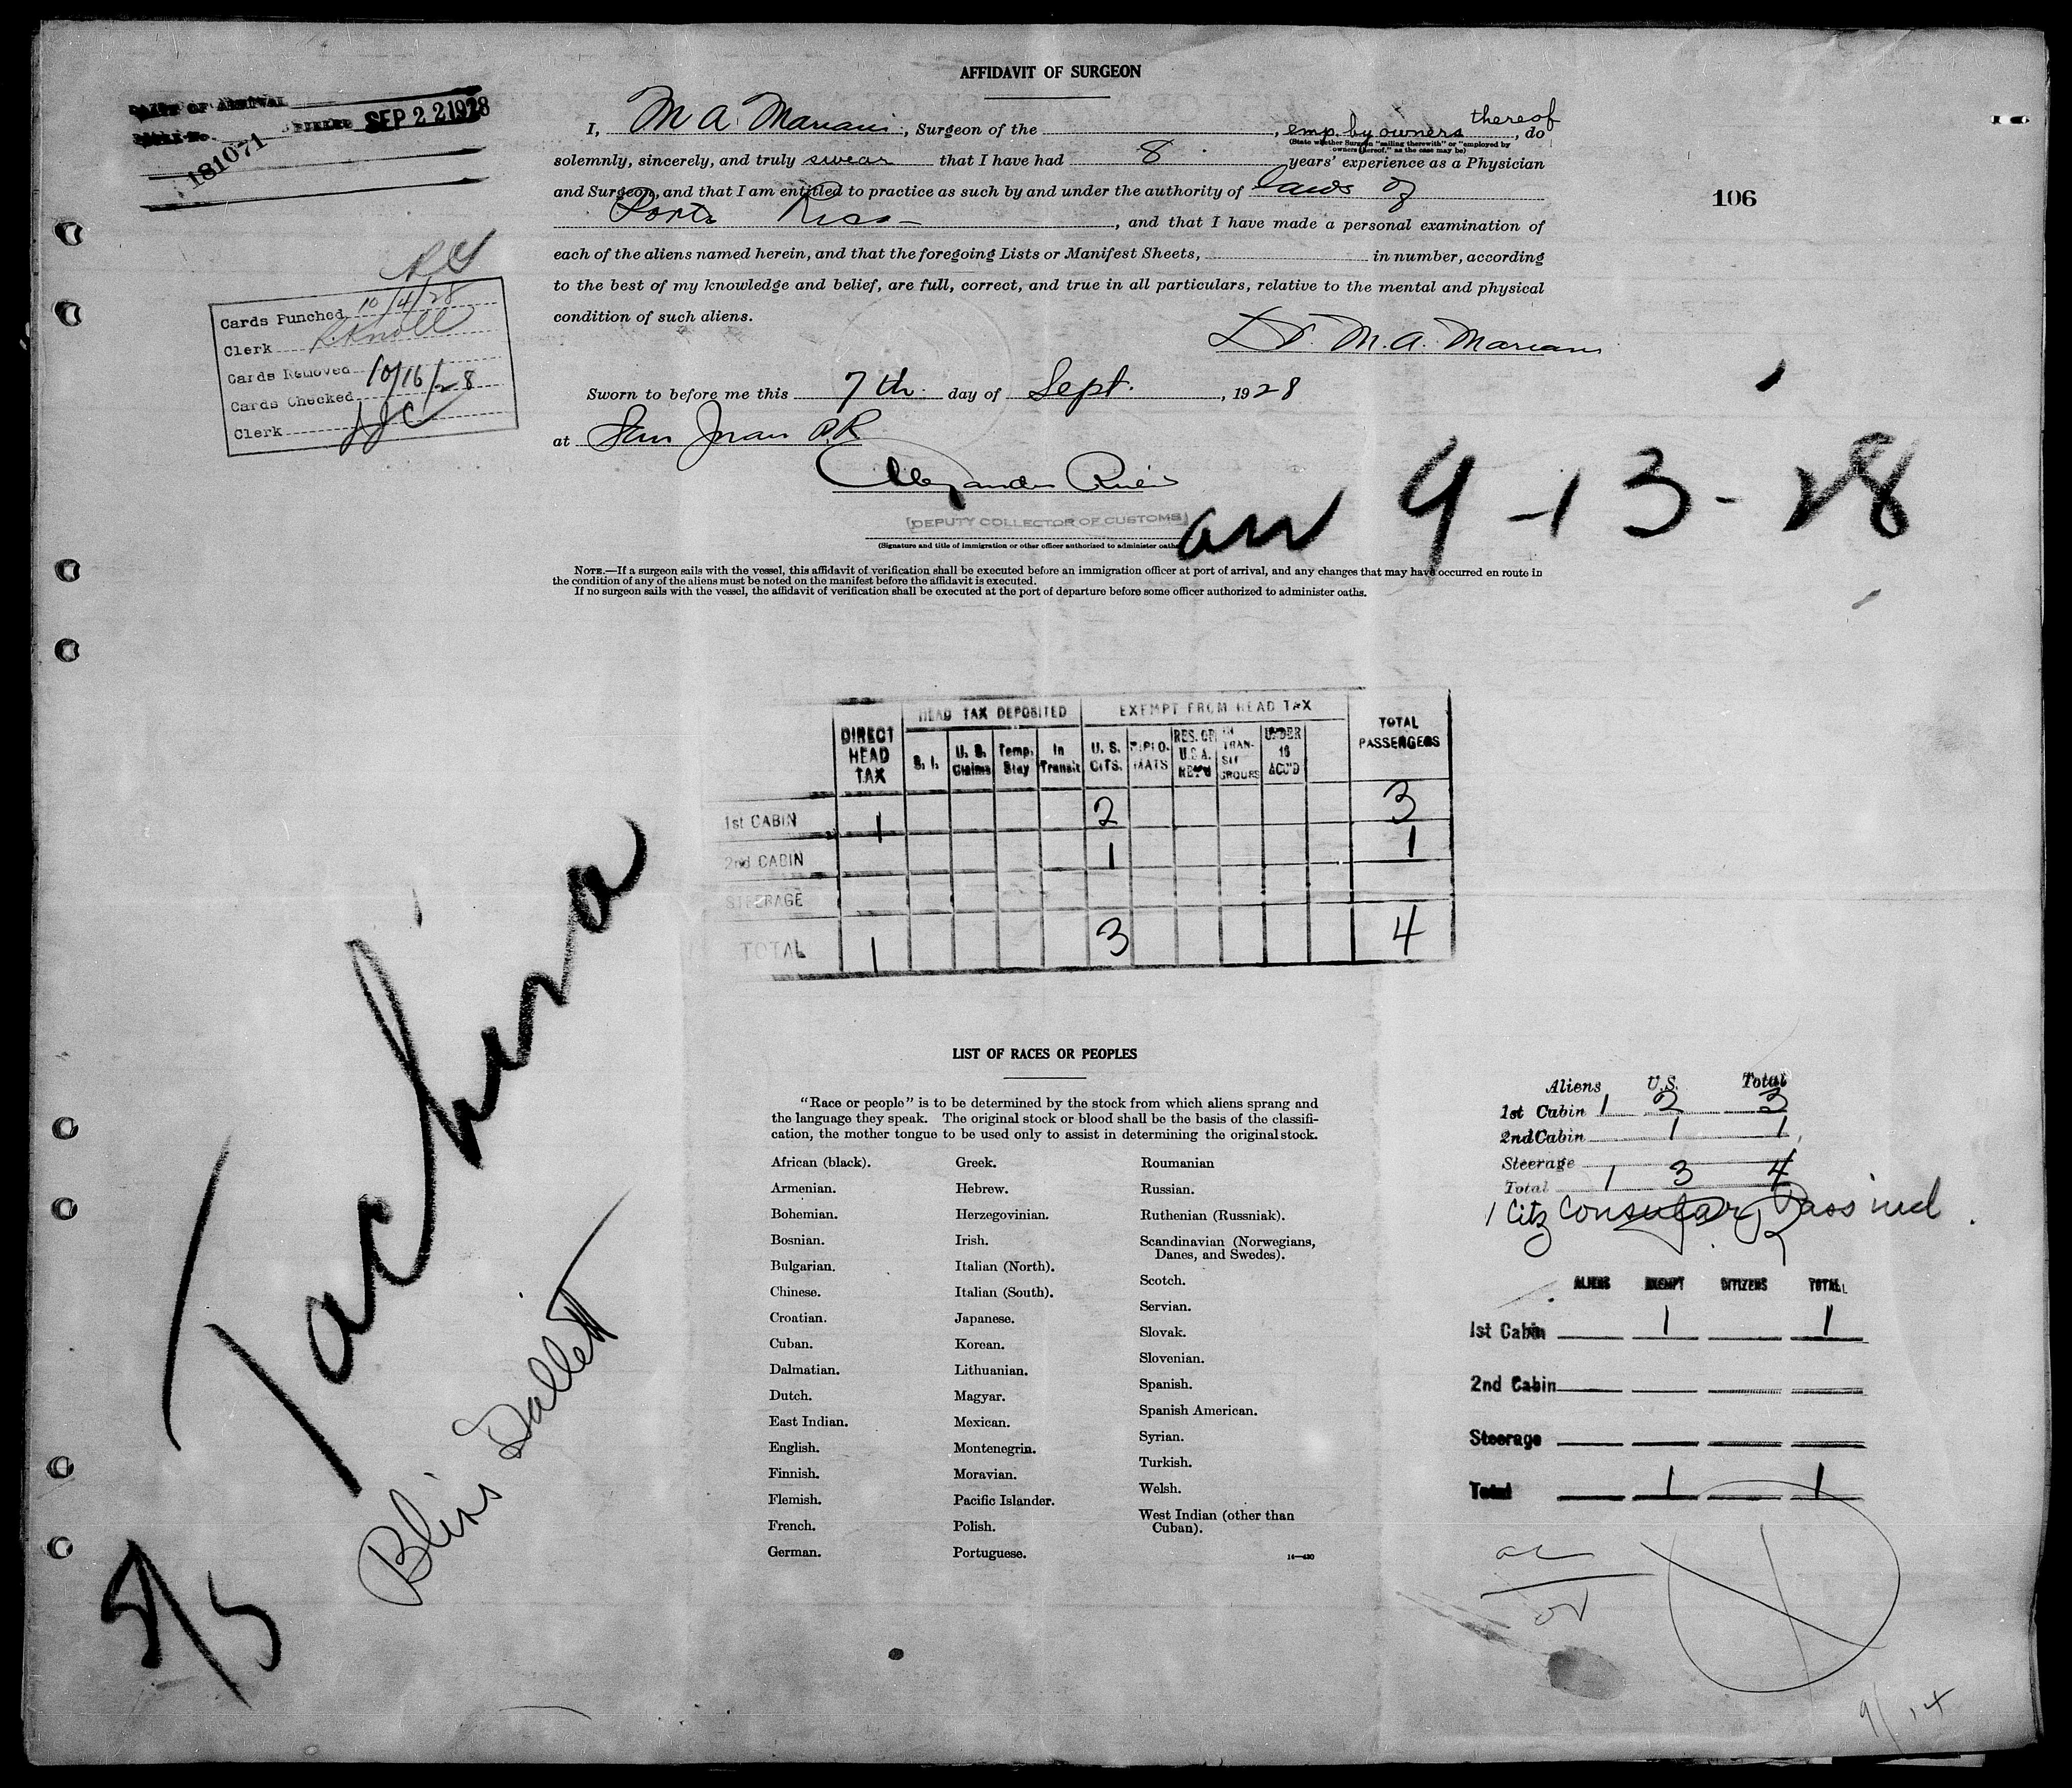 AFFIDAVIT OF SURGEON
DATE OF ARRIVAL
SEP 22 1928
181071
106
I, M A. Mariani, Surgeon of the , emp. by owners thereof, do
(State whether Surgeon "sailing therewith" or "employed by
owners thereof," as the case may be)
solemnly, sincerely, and truly swear that I have had 8 years' experience as a Physician
and Surgeon, and that I am entitled to practice as such by and under the authority of laws of
Porto Rico , and that I have made a personal examination of
each of the aliens named herein, and that the foregoing Lists or Manifest Sheets, in number, according
to the best of my knowledge and belief, are full, correct, and true in all particulars, relative to the mental and physical
condition of such aliens.
Dr. M. A. Mariani
Cards Punched 10/4/28
Clerk
Cards Removed
Cards Checked 10/16/28
Clerk JJC
Sworn to before me this 7th day of Sept. , 1928
at San Juan P.R.
DEPUTY COLLECTOR OF CUSTOMS
(Signature and title of immigration or other officer authorized to administer oaths
arr 9-13-28
NOTE.—If a surgeon sails with the vessel, this affidavit of verification shall be executed before an immigration officer at port of arrival, and any changes that may have occurred en route in
the condition of any of the aliens must be noted on the manifest before the affidavit is executed.
If no surgeon sails with the vessel, the affidavit of verification shall be executed at the port of departure before some officer authorized to administer oaths.
DIRECT HEAD TAX HEAD TAX DEPOSITED EXEMPT FROM HEAD TAX TOTAL PASSENGERS
S. I. U. S. Claims Temp. Stay In Transit U. S. CITS. DIPLOMATS RES. OF U.S.A. RET'D IN TRANSIT GROUPS UNDER 16 ACC'D
1st CABIN 1 2 3
2nd CABIN 1 1
STEERAGE
TOTAL 1 3 4
Tachira
Bliss Dallett
5/5
LIST OF RACES OR PEOPLES
"Race or people" is to be determined by the stock from which aliens sprang and
the language they speak. The original stock or blood shall be the basis of the classifi-
cation, the mother tongue to be used only to assist in determining the original stock.
African (black).
Armenian.
Bohemian.
Bosnian.
Bulgarian.
Chinese.
Croatian.
Cuban.
Dalmatian.
Dutch.
East Indian.
English.
Finnish.
Flemish.
French.
German.
Greek.
Hebrew.
Herzegovinian.
Irish.
Italian (North).
Italian (South).
Japanese.
Korean.
Lithuanian.
Magyar.
Mexican.
Montenegrin.
Moravian.
Pacific Islander.
Polish.
Portuguese.
Roumanian
Russian.
Ruthenian (Russniak).
Scandinavian (Norwegians,
Danes, and Swedes).
Scotch.
Servian.
Slovak.
Slovenian.
Spanish.
Spanish American.
Syrian.
Turkish.
Welsh.
West Indian (other than
Cuban).
14—430
Aliens U.S. Total
1st Cabin 1 2 3
2nd Cabin 1 1
Steerage
Total 1 3 4
1 Citz Consular Pass incl.
ALIENS EXEMPT CITIZENS TOTAL
1st Cabin 1 1
2nd Cabin
Steerage
Total 1 1
9/14